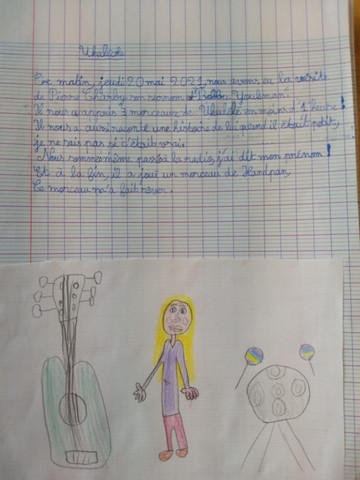 Ukulélé
Ce matin, jeudi 20 mai 2021, nous avons eu la visite
de Pierre Charby son
Il nous a appris 3 morceaux de Ukulélé en moins d'1 heure !
Il nous a aussi raconté une histoire de lui quand il était petit,
je ne sais pas si c'était vrai.
Nous sommes même passés à la radio, j'ai dit mon prénom !
Et à la fin, il a joué un morceau de Handpan,
Ce morceau m'a fait rêver.